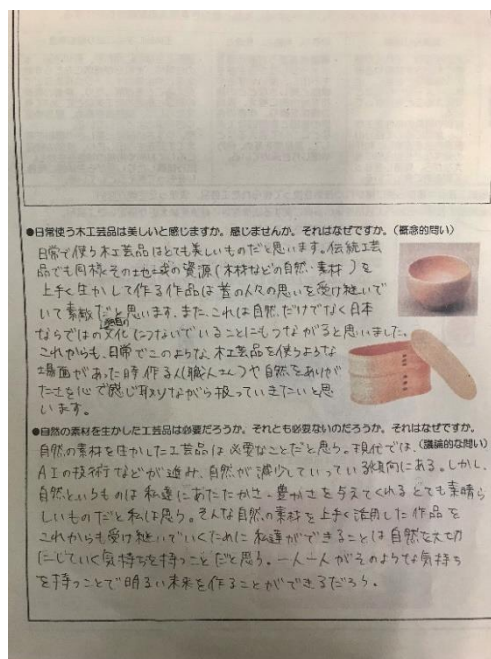 ●日常使う木工芸品は美しいと感じますか。感じませんか。それはなぜですか。(概念的問い)
日常で使う木工芸品はとても美しいものだと思います。伝統工芸
品でも同様その土地の資源(木材などの自然素材)を
上手く生かして作る作品は昔の人々の思いを受け継いで
いて素敵だと思います。また、これは自然だけでなく日本
ならではの文化につないでいることにもつながると思いました。
これからも、日常でこのような木工芸品を使うような
場面があった時作る人(職人さん)や自然をありが
たさを心で感じ取りながら扱っていきたいと思
います。
●自然の素材を生かした工芸品は必要だろうか。それとも必要ないのだろうか。それはなぜですか。
(議論的な問い)
自然の素材を生かした工芸品は必要なことだと思う。現代では、
AIの技術などが進み、自然が減少していっている傾向にある。しかし、
自然というものは私達にあたたかさ、豊かさを与えてくれるとても素晴ら
しいものだと私は思う。そんな自然の素材を上手く活用した作品を
これからも受け継いでいくために私達ができることは自然を大切
にしていく気持ちを持つことだと思う。一人一人がそのような気持ち
を持つことで明るい未来を作ることができるだろう。